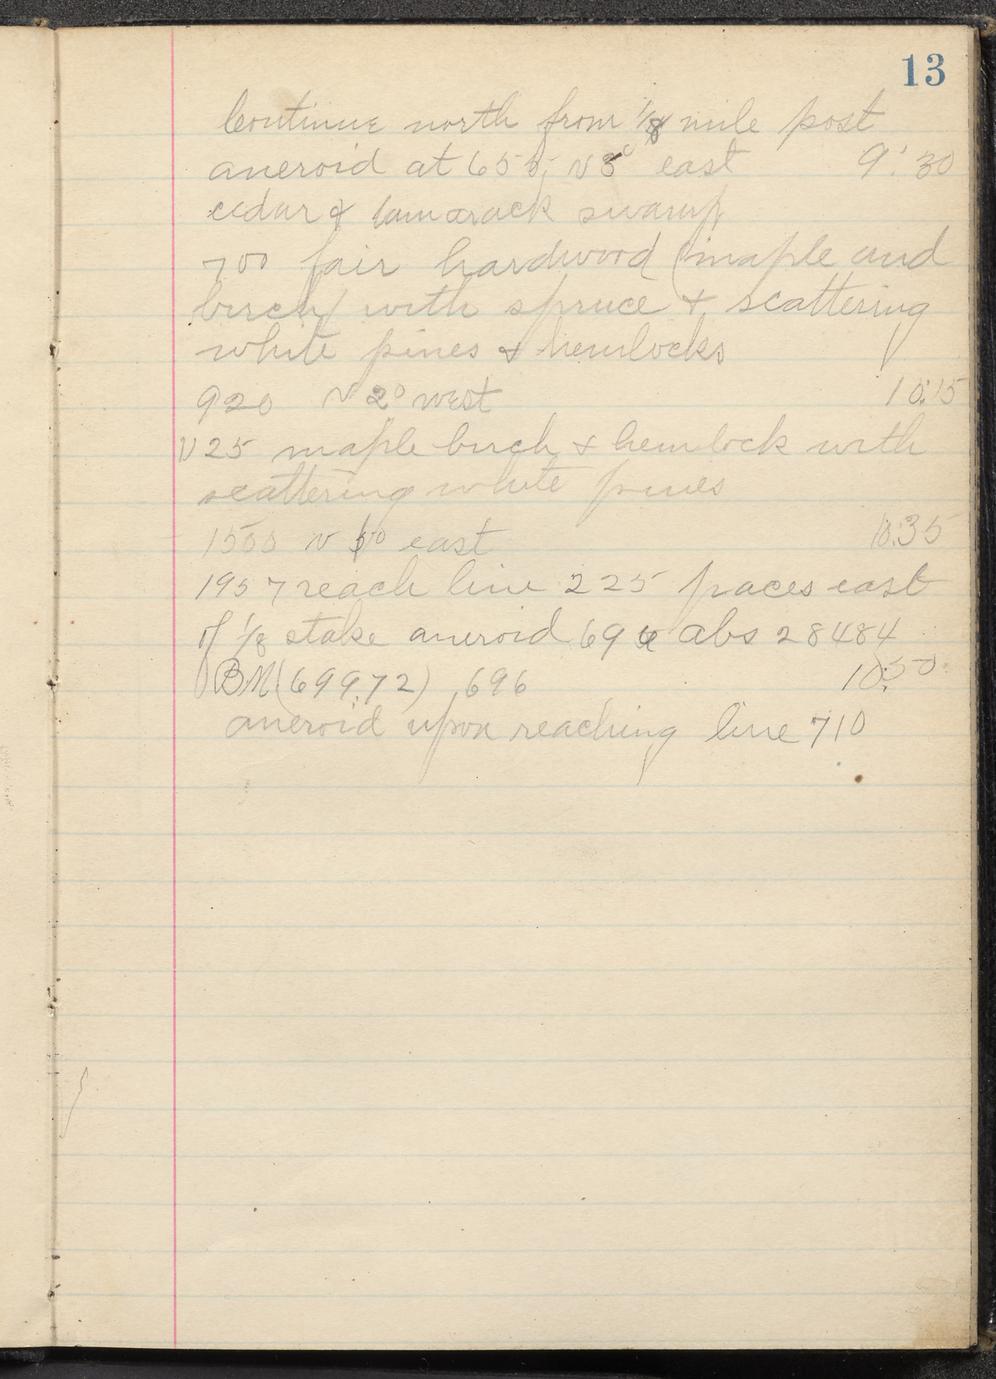 13
Continue north from 1/8 mile post
aneroid at 655, v 3° east 9:30
cedar & tamarack swamp
700 fair hardwood (maple and
birch) with spruce + scattering
white pines & hemlocks
920 v 2° west 10:15
V25 maple birch & hemlock with
scattering white pines
1500 v ° east 10:35
1957 reach line 225 paces east
of 1/8 stake aneroid 696 abs 28484
BM (699.72) ,696 10:50
aneroid upon reaching line 710